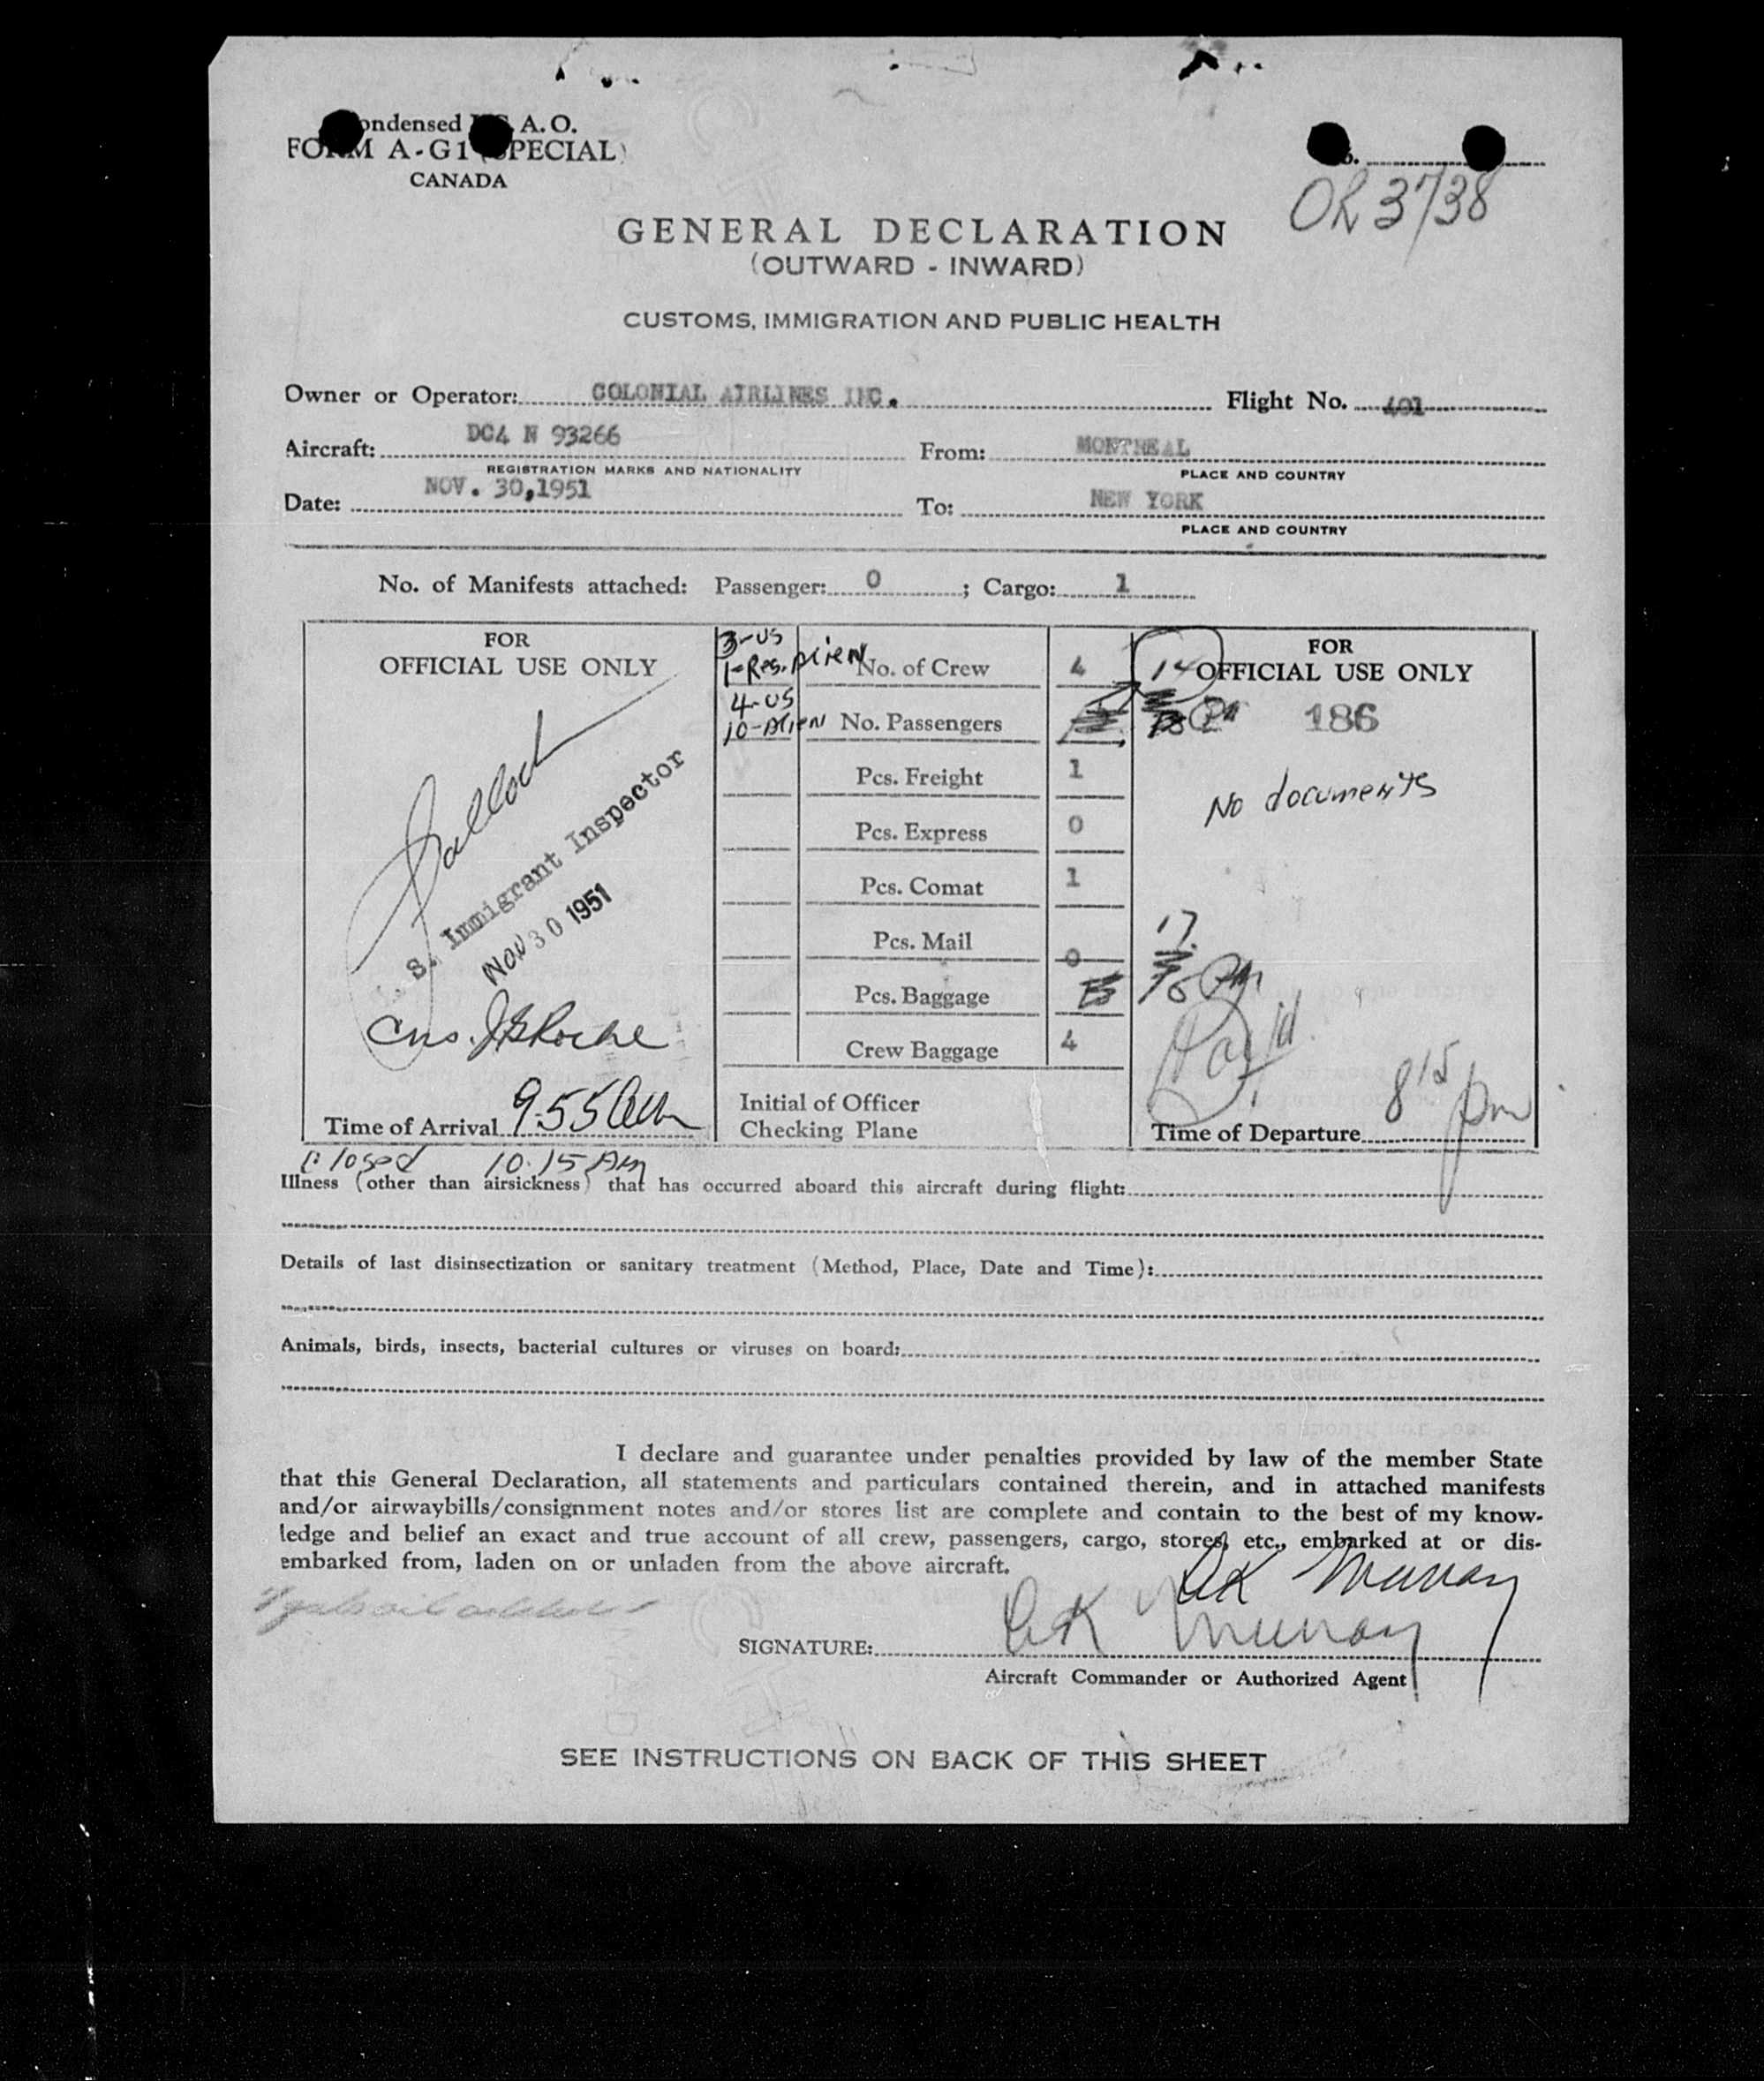 ondensed A.O.
FORM A-G1 (SPECIAL)
CANADA
OR 3738
GENERAL DECLARATION
(OUTWARD - INWARD)
CUSTOMS, IMMIGRATION AND PUBLIC HEALTH
Owner or Operator: COLONIAL AIRLINES INC. Flight No. 401
Aircraft: DC4 N 93266 From: MONTREAL
REGISTRATION MARKS AND NATIONALITY PLACE AND COUNTRY
Date: NOV. 30,1951 To: NEW YORK
PLACE AND COUNTRY
No. of Manifests attached: Passenger: 0 ; Cargo: 1
FOR
OFFICIAL USE ONLY
S. Immigrant Inspector
NOV 30 1951
Cus.
Time of Arrival 9.55 Am
Closed 10.15 Am
3-US
1-Res. Alien No. of Crew 4
4-US
10-Alien No. Passengers 14
Pcs. Freight 1
Pcs. Express 0
Pcs. Comat 1
Pcs. Mail 0
Pcs. Baggage 17
Crew Baggage 4
Initial of Officer
Checking Plane
FOR
OFFICIAL USE ONLY
186
No documents
Time of Departure 8 15 pm
Illness (other than airsickness) that has occurred aboard this aircraft during flight:
Details of last disinsectization or sanitary treatment (Method, Place, Date and Time):
Animals, birds, insects, bacterial cultures or viruses on board:
I declare and guarantee under penalties provided by law of the member State
that this General Declaration, all statements and particulars contained therein, and in attached manifests
and/or airwaybills/consignment notes and/or stores list are complete and contain to the best of my know-
ledge and belief an exact and true account of all crew, passengers, cargo, stores, etc., embarked at or dis-
embarked from, laden on or unladen from the above aircraft.
Murray
SIGNATURE: Murray
Aircraft Commander or Authorized Agent
SEE INSTRUCTIONS ON BACK OF THIS SHEET